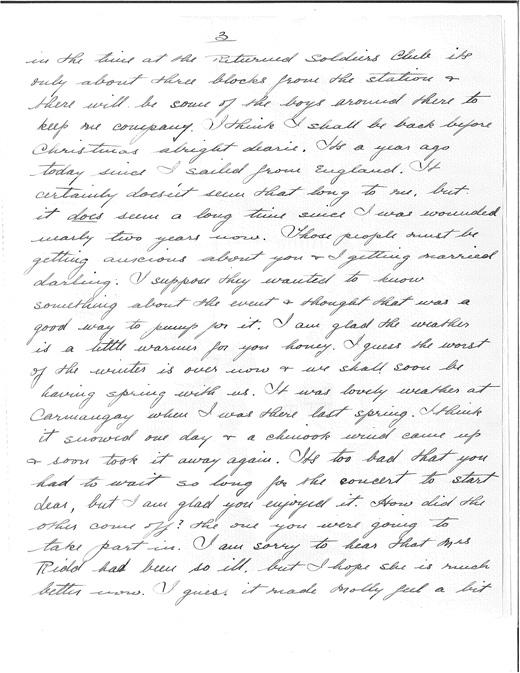 3
in the time at the Returned Soldiers Club its
only about three blocks from the station &
there will be some of the boys around there to
keep me company. I think I shall be back before
Christmas alright dearie. Its a year ago
today since I sailed from England. It
certainly doesn't seem that long to me, but
it does seem a long time since I was wounded
nearly two years now. Those people must be
getting auxcious about you & I getting married
darling. I suppose they wanted to know
something about the event & thought that was a
good way to pump for it. I am glad the weather
is a little warmer for you honey. I guess the worst
of the winter is over now & we shall soon be
having spring with us. It was lovely weather at
Carmangay when I was there last spring. I think
it snowed one day & a chinook wind came up
& soon took it away again. Its too bad that you
had to wait so long for the concert to start
dear, but I am glad you enjoyed it. How did the
other come off? the one you were going to
take part in. I am sorry to hear that Mrs
Ridd had been so ill, but I hope she is much
better now. I guess it made Molly feel a bit